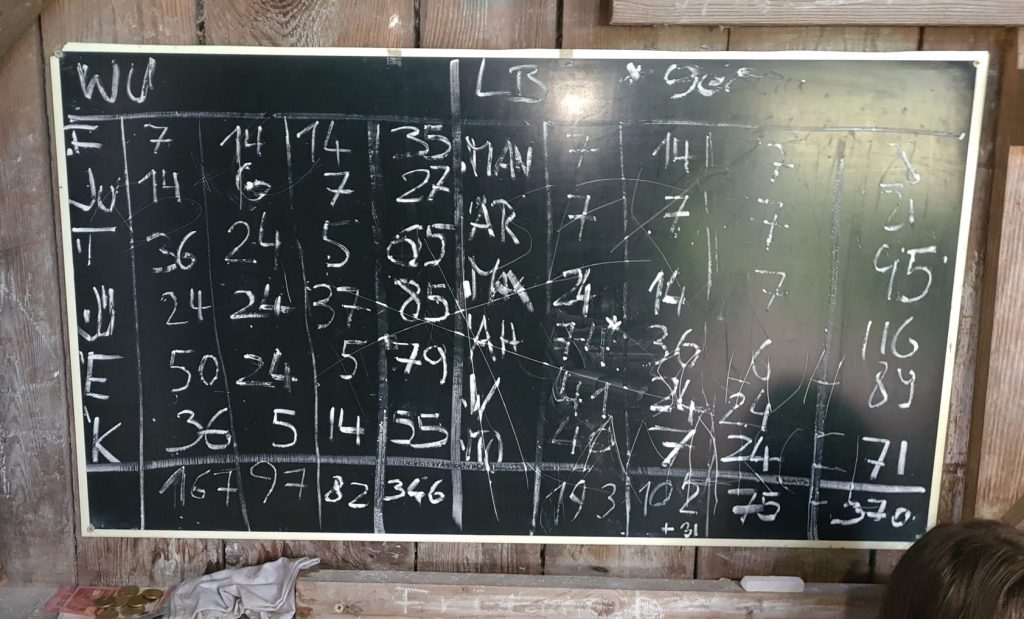 WU LB * 90er
H 7 14 14 35 MAN 7 14 7 28
JU 14 6 7 27 AR 7 7 7 21
T 36 24 5 65 MA 24 14 7 45
24 24 37 85 AH 74* 36 6 116
E 50 24 5 79 41 24 24 89
K 36 5 14 55 40 7 24 = 71
167 97 82 346 193 102 75 - 370
+ 31